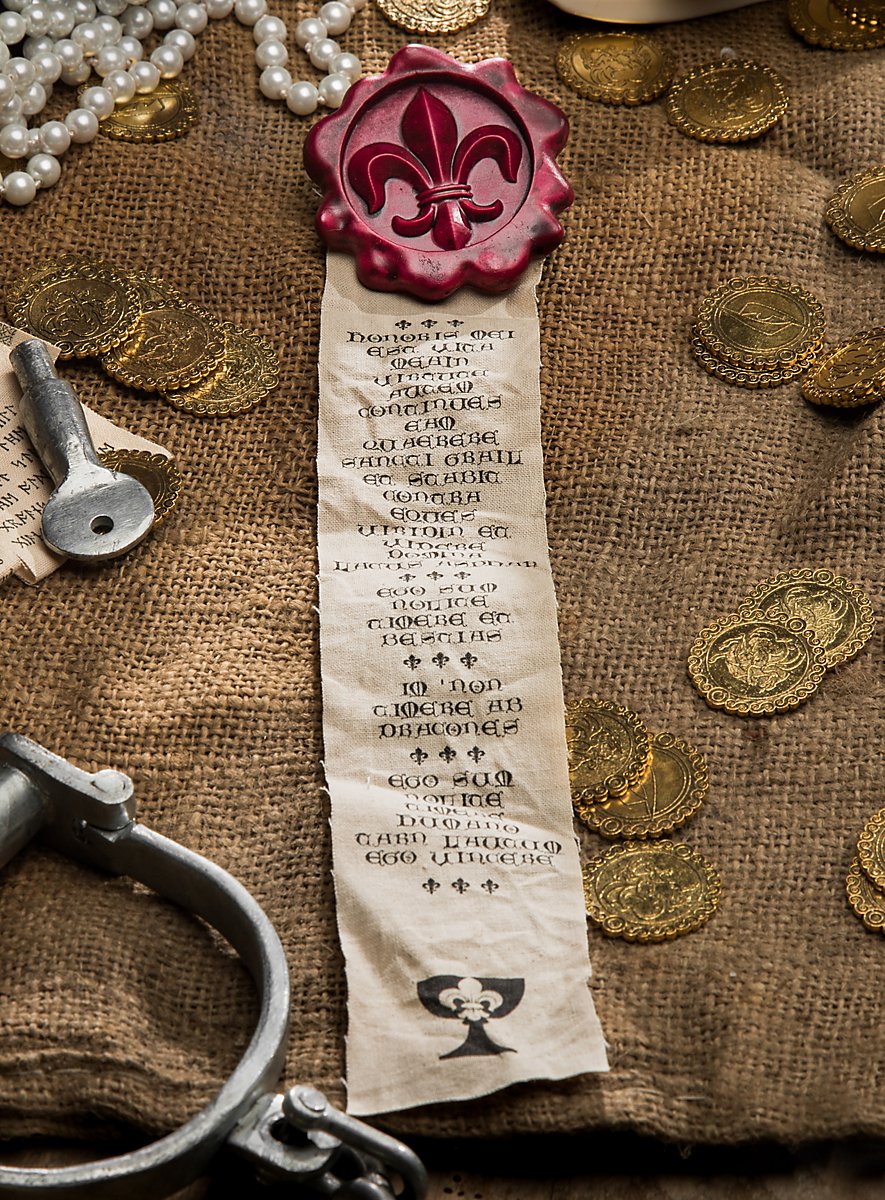 HONORIS MEI
EST VITA
MEAIN
VIRTUTE
AUTEM
CONTINUES
EAM
QUAERERE
SANCTI GRAIL
ET STABIT
CONTRA
EQUES
VIRIDIN ET
VINCERE
DOMINA
LATUS ASPHAR
EGO SUM
NOLITE
TIMERE ET
BESTIAS
IM 'NON
TIMERE AB
DRACONES
EGO SUM
NOLITE
TIMERE
HUMANO
TARN LAUTUM
EGO VINCERE